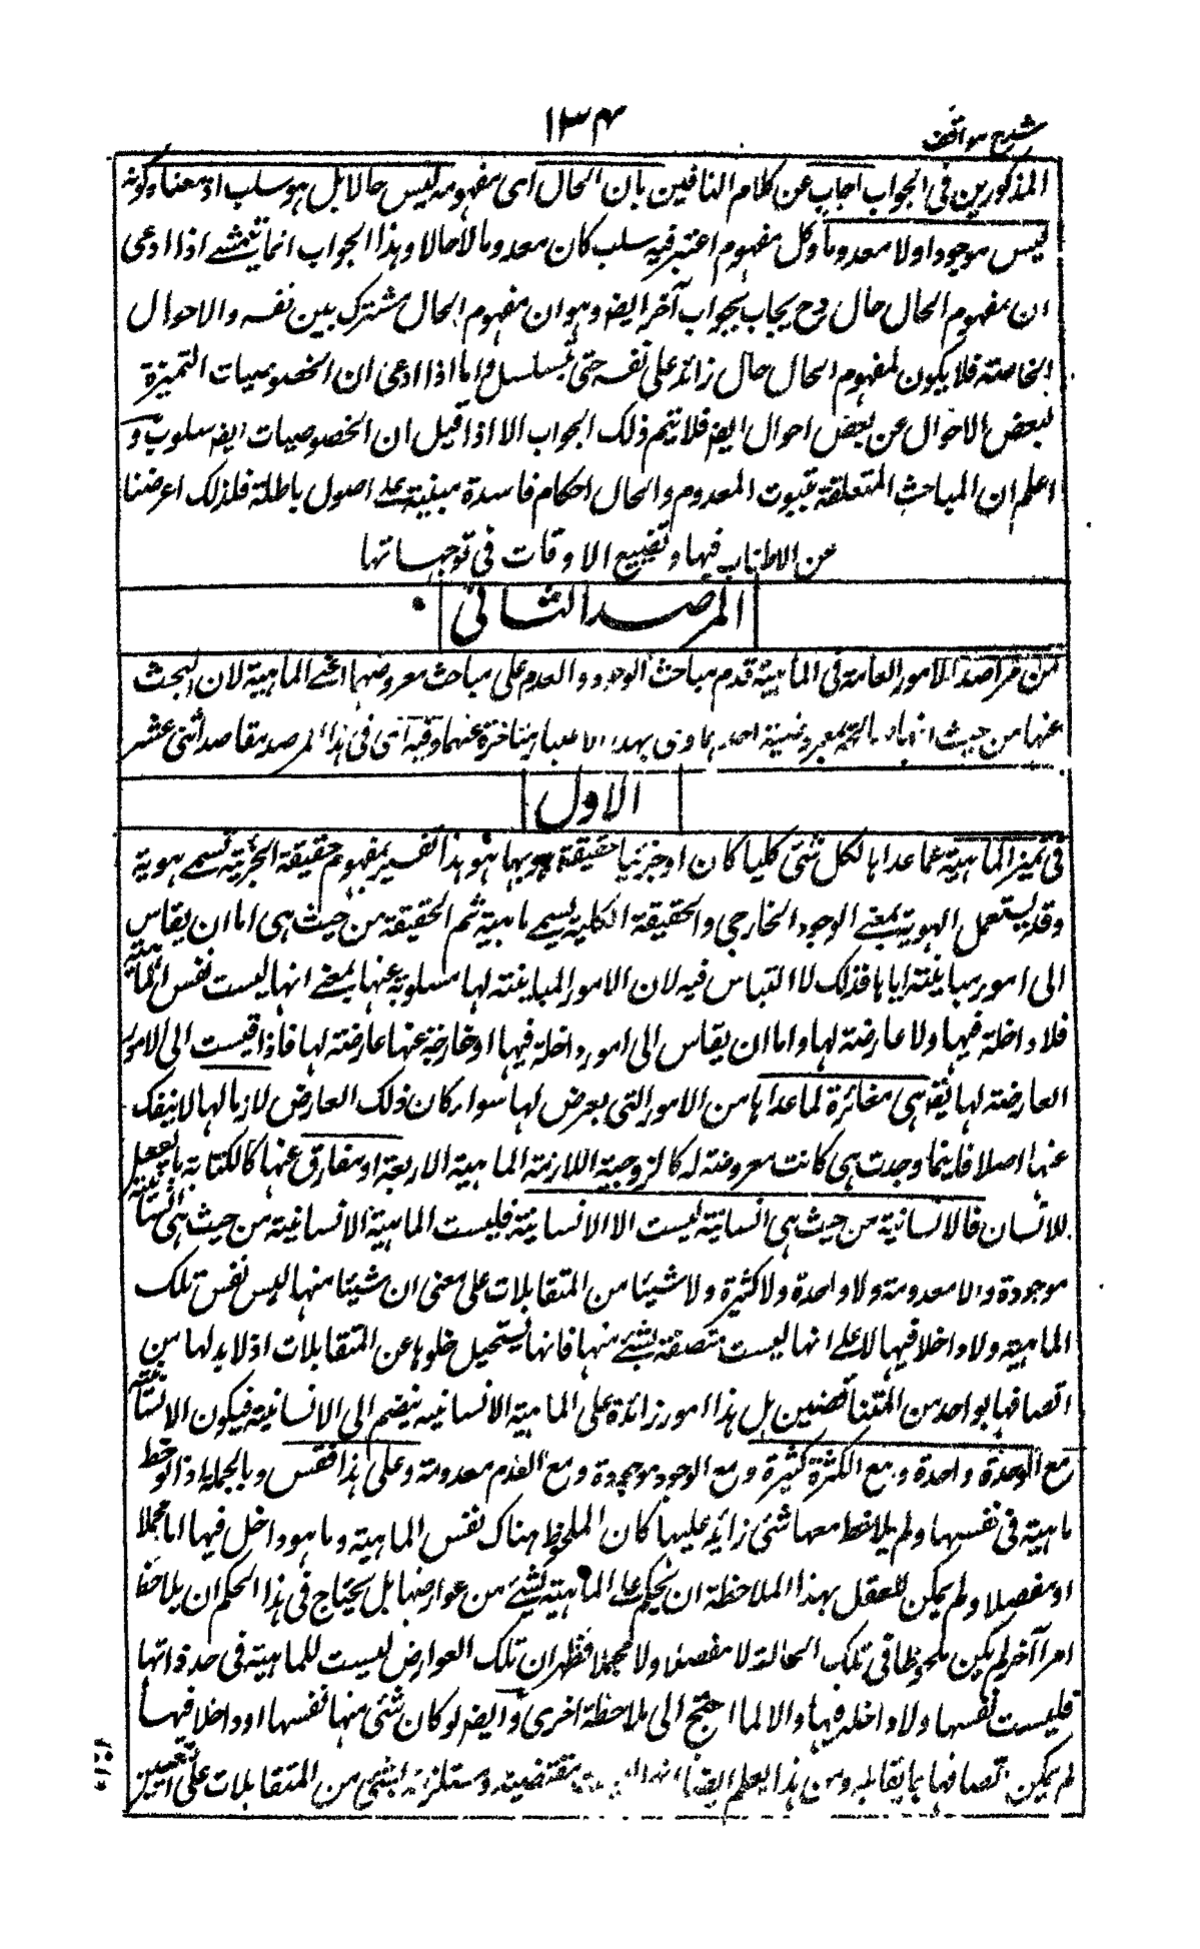 شرح مواقف
۱۳۴
المذكورين فى الجواب اجاب عن كلام النافين بان الحال اى مفهومه ليس حالا بل هو سلب اذ معناه كونه
ليس موجودا ولا معدوما وكل مفهوم اعتبر فيه سلب كان معدوما لا حالا وهذا الجواب انما يتمشے اذا ادعى
ان مفهوم الحال حال وح يجاب بجواب آخر ايضا وهو ان مفهوم الحال مشترك بين نفسه والاحوال
الخاصة فلا يكون لمفهوم الحال حال زائد على نفسه حتى يتسلسل واما اذا ادعى ان الخصوصيات المتميزة
لبعض الاحوال عن بعض احوال ايضا فلا يتم ذلك الجواب الا اذا قيل ان الخصوصيات ايضا سلوب و
اعلم ان المباحث المتعلقة بثبوت المعدوم والحال احكام فاسدة مبنية علے اصول باطلة فلذلك اعرضنا
عن الاطناب فيها وتضييع الاوقات فى توجيهاتها
المرصد الثانى
من مراصد الامور العامة فى الماهية قدم مباحث الوجود والعدم على مباحث معروضهما اعنے الماهية لان البحث
عنها من حيث انها معروضية متاخرة عنهما وفيه اى فى هذا المرصد مقاصد اثنى عشر
الاول
فى تميز الماهية عما عداها لكل شئ كليا كان او جزئيا حقيقة هو بها هو هذا تفسير بمفهوم حقيقة الجزئية تسمے هوية
وقد يستعمل الهوية بمعنے الوجود الخارجي والحقيقة الكلية يسمے ماهية ثم الحقيقة من حيث هى اما ان يقاس
الى امور مباينة اياها فذلك لا التباس فيه لان الامور المباينة لها مسلوبة عنها بمعنے انها ليست نفس الماهية
فلا داخلة فيها ولا عارضة لها واما ان يقاس الى امور داخلة فيها او خارجة عنها عارضة لها فاذا قيست الى الامور
العارضة لها يقا هى مغائرة لما عداها من الامور التى يعرض لها سواء كان ذلك العارض لازما لها لا ينفك
عنها اصلا فاينما وجدت هى كانت معروضة له كالزوجية اللازمة الماهية الاربعة او مفارق عنها كالكتابة بالفعل
للانسان فالانسانية من حيث هى انسانية ليست الا الانسانية فليست الماهية الانسانية من حيث هى انسانية
موجودة والا معدومة ولا واحدة ولا كثيرة ولا شيئا من المتقابلات على معنى ان شيئا منها ليس نفس تلك
الماهية ولا داخلا فيها لا علے انها ليست متصفة بشئے منها فانها يستحيل خلوها عن المتقابلات اذ لابد لها من
اتصافها بواحد من المتناقضين بل هذا امور زائدة على الماهية الانسانيه ينضم الى الانسانية فيكون الانسانية
مع الوحدة واحدة و مع الكثرة كثيرة و مع الوجود موجودة و مع العدم معدومة وعلى هذا فقس وبالجملة اذا لوحظ
ماهية فى نفسها ولم يلاحظ معها شئ زائد عليها كان الملحوظ هناك نفس الماهية وما هو داخل فيها اما مجملا
او مفصلا ولم يمكن للعقل بهذا الملاحظة ان يحكم علے الماهية بشئے من عوارضها بل يحتاج فى هذا الحكم ان يلاحظ
امرا آخر لم يكن ملحوظا فى تلك الحالة لا مفصلا ولا مجملا فظهر ان تلك العوارض ليست للماهية فى حد ذاتها
فليست نفسها ولا داخله فيها والا لما احتيج الى ملاحظة اخرى وايضا لو كان شئ منها نفسها او داخلا فيها
لم يمكن اتصافها بما يقابله ومن هذا يعلم ايضا مقتضية ومستلزمة لشئ من المتقابلات على التعيين